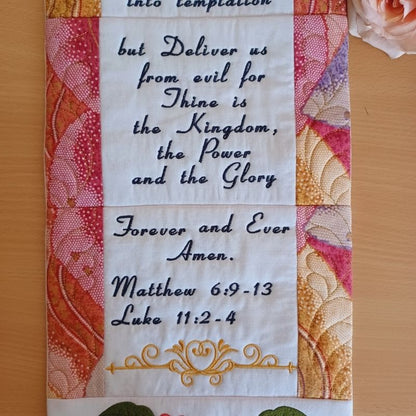 into temptation
but Deliver us
from evil for
Thine is
the Kingdom,
the Power
and the Glory
Forever and Ever
Amen.
Matthew 6:9-13
Luke 11:2-4